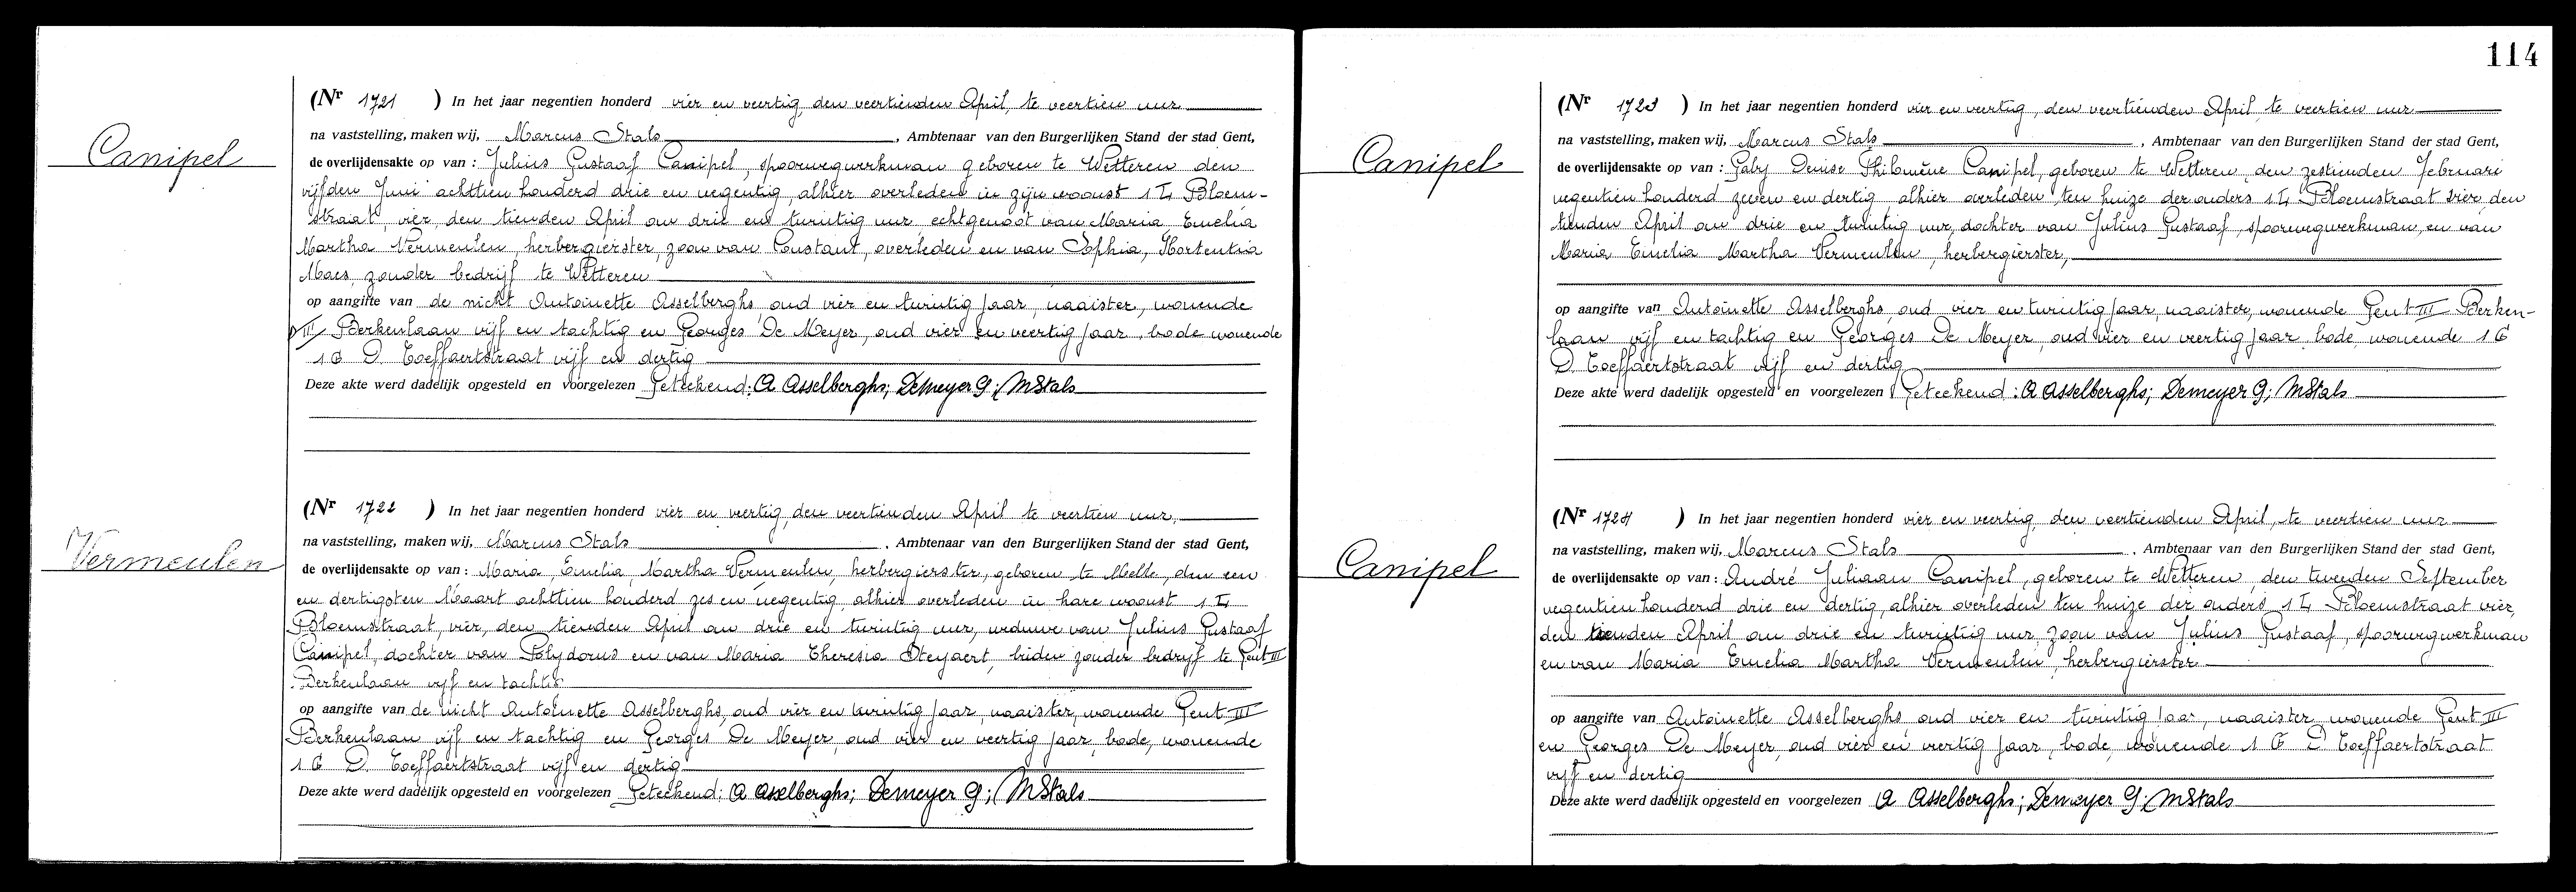 114
Canipel
(Nr 1721 ) In het jaar negentien honderd vier en veertig, den veertienden April, te veertien uur
na vaststelling, maken wij, Marcus Stals , Ambtenaar van den Burgerlijken Stand der stad Gent,
de overlijdensakte op van : Julius Gustaaf Canipel, spoorwegwerkman geboren te Wetteren den
vijfden Juni achttien honderd drie en negentig, alhier overleden in zijn woonst 1 L Bloem-
straat, vier, den tienden April om drie en twintig uur echtgenoot van Maria, Emelia
Martha Vermeulen, herbergierster, zoon van Constant, overleden en van Sophia, Hortentia
Maes, zonder bedrijf te Wetteren
op aangifte van de nicht Antoinette Asselberghs, oud vier en twintig jaar, naaister, wonende
III Berkenlaan vijf en tachtig en Georges De Meyer, oud vier en veertig jaar, bode wonende
1 G D. Toeffaertstraat vijf en dertig
Deze akte werd dadelijk opgesteld en voorgelezen Geteekend: A Asselberghs; Demeyer G; MStals
Vermeulen
(Nr 1722 ) In het jaar negentien honderd vier en veertig, den veertienden April te veertien uur,
na vaststelling, maken wij, Marcus Stals , Ambtenaar van den Burgerlijken Stand der stad Gent,
de overlijdensakte op van : Maria, Emelia, Martha Vermeulen, herbergierster, geboren te Melle, den een
en dertigsten Maart achttien honderd zes en negentig, alhier overleden in hare woonst 1 L
Bloemstraat, vier, den tienden April om drie en twintig uur, weduwe van Julius Gustaaf
Canipel, dochter van Polydorus en van Maria Theresia Steyaert, beiden zonder bedrijf te Gent III
Berkenlaan vijf en tachtig
op aangifte van de nicht Antoinette Asselberghs, oud vier en twintig jaar, naaister, wonende Gent III
Berkenlaan vijf en tachtig en Georges De Meyer, oud vier en veertig jaar, bode, wonende
1 G D. Toeffaertstraat vijf en dertig
Deze akte werd dadelijk opgesteld en voorgelezen Geteekend: A Asselberghs; Demeyer G; MStals
Canipel
(Nr 1723 ) In het jaar negentien honderd vier en veertig, den veertienden April te veertien uur
na vaststelling, maken wij, Marcus Stals , Ambtenaar van den Burgerlijken Stand der stad Gent,
de overlijdensakte op van : Gaby Denise Philomène Canipel, geboren te Wetteren, den zestienden Februari
negentien honderd zeven en dertig, alhier overleden, ten huize der ouders 1 L Bloemstraat vier, den
tienden April om drie en twintig uur, dochter van Julius Gustaaf, spoorwegwerkman, en van
Maria Emelia Martha Vermeulen, herbergierster,
op aangifte van Antoinette Asselberghs, oud vier en twintig jaar, naaister, wonende Gent III Berken-
laan vijf en tachtig en Georges De Meyer, oud vier en veertig jaar, bode, wonende 1 G
D. Toeffaertstraat vijf en dertig
Deze akte werd dadelijk opgesteld en voorgelezen Geteekend : A Asselberghs; Demeyer G; MStals
Canipel
(Nr 1724 ) In het jaar negentien honderd vier en veertig, den veertienden April, te veertien uur
na vaststelling, maken wij, Marcus Stals , Ambtenaar van den Burgerlijken Stand der stad Gent,
de overlijdensakte op van : André Juliaan Canipel, geboren te Wetteren, den tweeden September
negentien honderd drie en dertig, alhier overleden ten huize der ouders 1 L Bloemstraat vier,
den tienden April om drie en twintig uur, zoon van Julius Gustaaf, spoorwegwerkman
en van Maria Emelia Martha Vermeulen, herbergierster
op aangifte van Antoinette Asselberghs oud vier en twintig jaar, naaister wonende Gent III
en Georges De Meyer, oud vier en veertig jaar, bode, wonende 1 G D Toeffaertstraat
vijf en dertig
Deze akte werd dadelijk opgesteld en voorgelezen A Asselberghs; Demeyer G; MStals